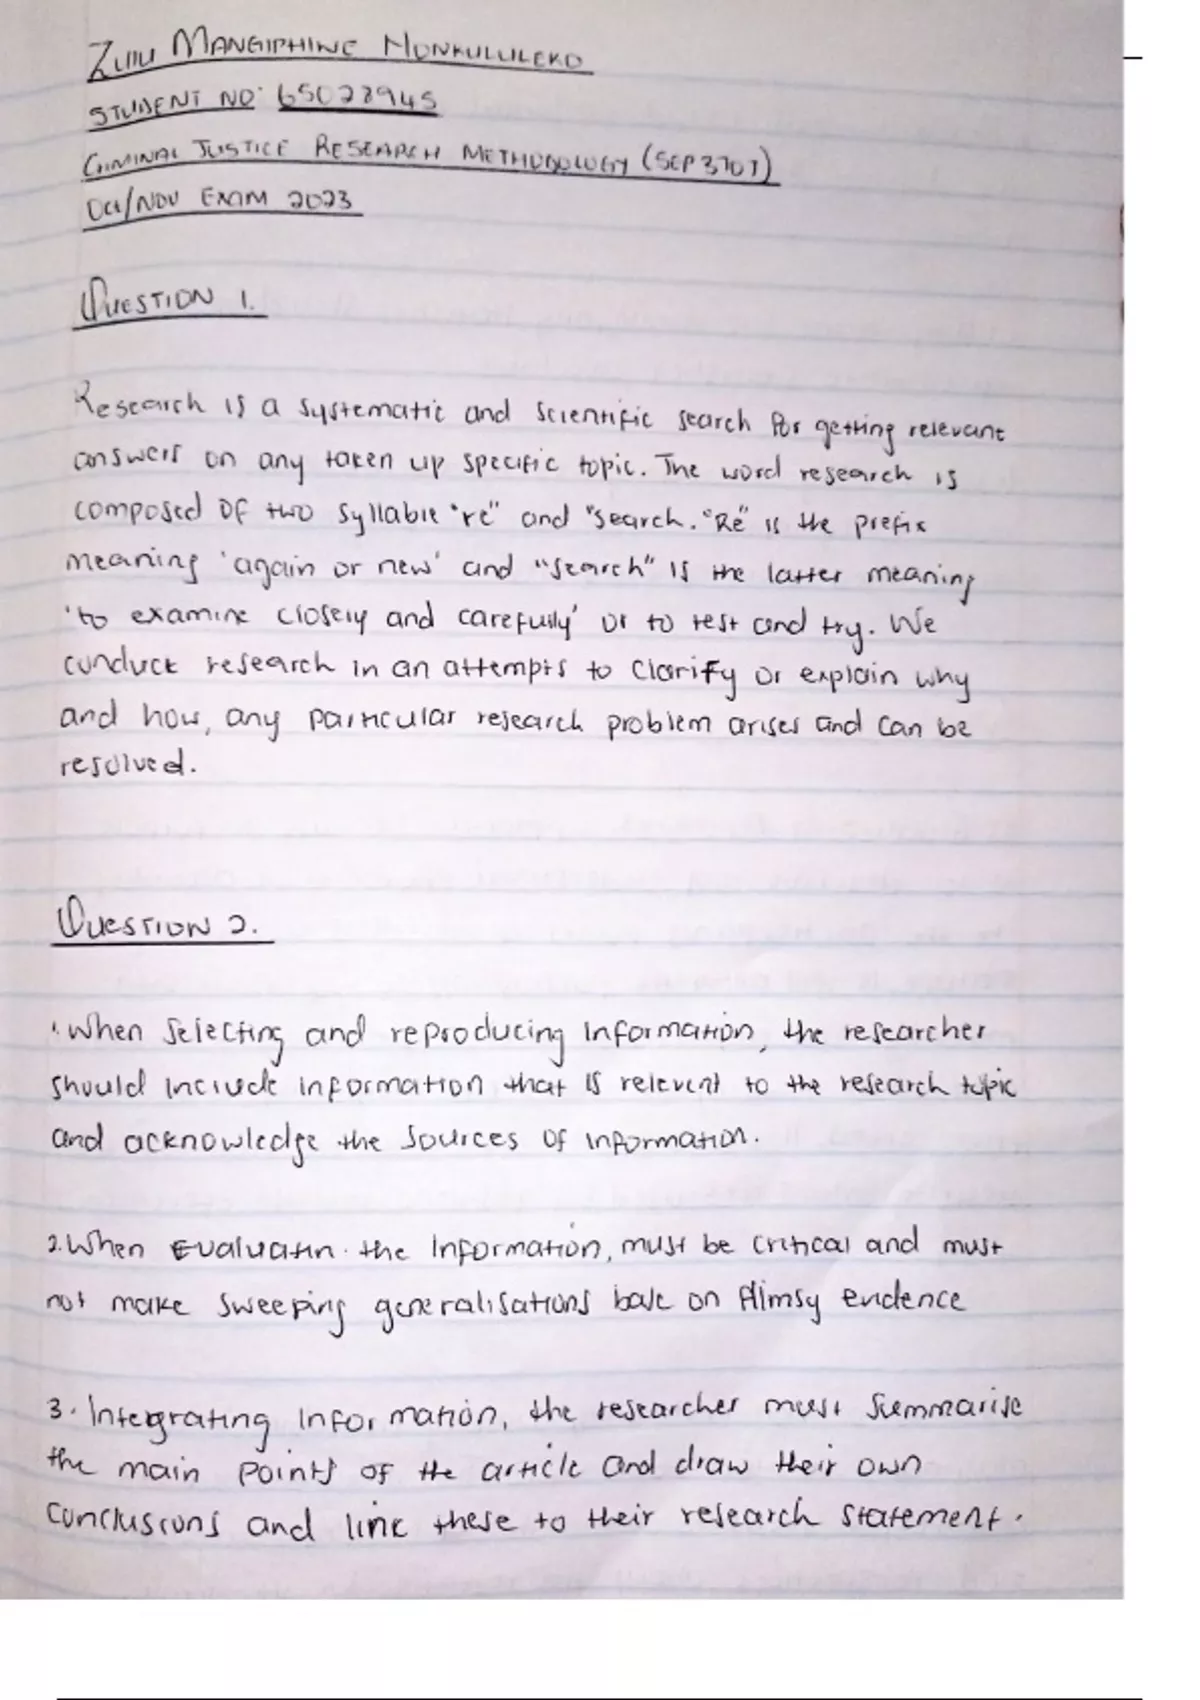 Zulu Mangiphiwe Nonkululeko
Student No: 65028945
Criminal Justice Research Methodology (SEP3701)
Oct/Nov Exam 2023
Question 1.
Research is a systematic and scientific search for getting relevant
answers on any taken up specific topic. The word research is
composed of two syllable "re" and "search. "Re" is the prefix
meaning 'again or new' and "search" is the latter meaning
'to examine closely and carefully' or to test and try. We
conduct research in an attempts to clarify or explain why
and how, any particular research problem arises and can be
resolved.
Question 2.
1. When selecting and reproducing information, the researcher
should include information that is relevent to the research topic
and acknowledge the sources of information.
2. When Evaluatin. the information, must be critical and must
not make sweeping generalisations base on flimsy evidence
3. Integrating information, the researcher must summarise
the main points of the article and draw their own
conclusions and link these to their research statement.